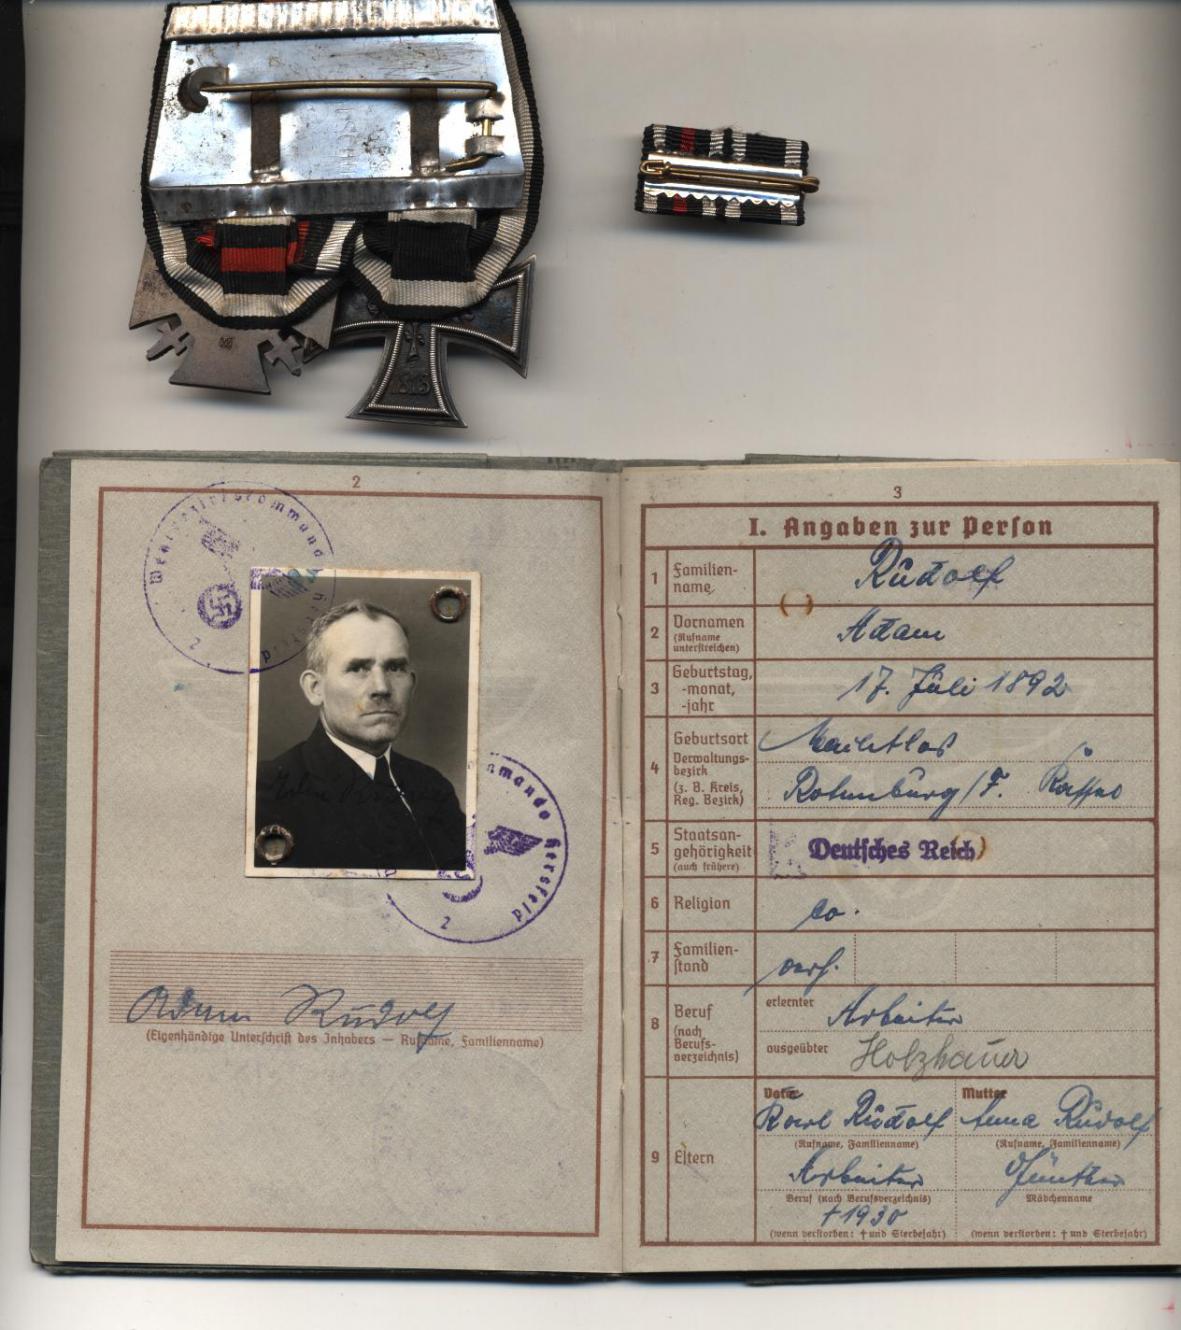 1813
2
Wehrbezirkskommando Hersfeld
2
Wehrbezirkskommando Hersfeld
2
Adam Rudolf
(Eigenhändige Unterschrift des Inhabers — Rufname, Familienname)
3
I. Angaben zur Person
1 Familien-
name
Rudolf
2 Vornamen
(Rufname
unterstreichen)
Adam
3 Geburtstag,
-monat,
-jahr
17. Juli 1892
4 Geburtsort
Verwaltungs-
bezirk
(z. B. Kreis,
Reg. Bezirk)
Machtlos
Rotenburg/F. Kassel
5 Staatsan-
gehörigkeit
(auch frühere)
Deutsches Reich
6 Religion
ev.
7 Familien-
stand
verh.
8 Beruf
(nach
Berufs-
verzeichnis)
erlernter Arbeiter
ausgeübter Holzhauer
9 Eltern
Vater
Karl Rudolf
(Rufname, Familienname)
Arbeiter
Beruf (nach Berufsverzeichnis)
† 1930
(wenn verstorben: † und Sterbejahr)
Mutter
Anna Rudolf
(Rufname, Familienname)
Günther
Mädchenname
(wenn verstorben: † und Sterbejahr)